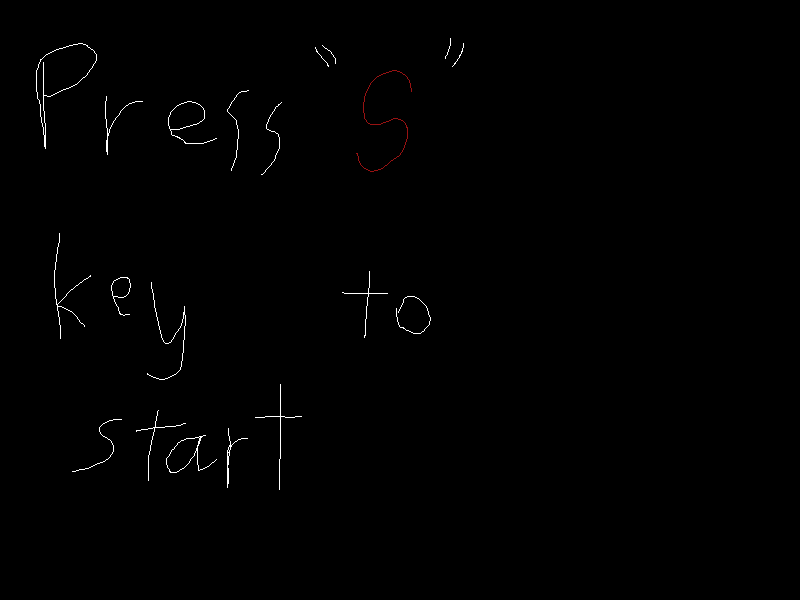 Press "S"
key to
start